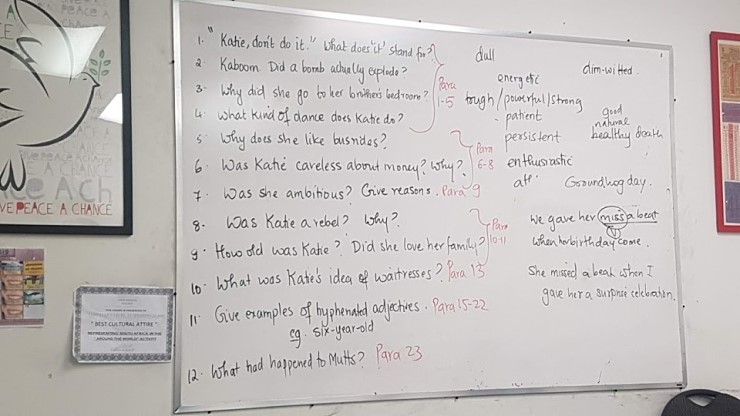 1. "Katie, don't do it." What does 'it' stand for?
2. Kaboom. Did a bomb actually explode?
3. Why did she go to her brother's bedroom?
4. What kind of dance does Katie do?
Para
1-5
5. Why does she like busrides?
6. Was Katie careless about money? Why?
Para
6-8
7. Was she ambitious? Give reasons. Para 9
8. Was Katie a rebel? Why?
9. How old was Katie? Did she love her family?
Para
10-11
10. What was Katie's idea of waitresses? Para 13
11. Give examples of hyphenated adjectives. Para 15-22
eg. six-year-old
12. What had happened to Mutts? Para 23
dull
dim-witted
energetic
tough/powerful/strong
patient
persistent
enthusiastic
good
natural
healthy death
Groundhog day.
We gave her miss a beat
when her birthday come.
She missed a beat when I
gave her a surprise celebration.
VE PEACE A CHANCE
" BEST CULTURAL ATTIRE "